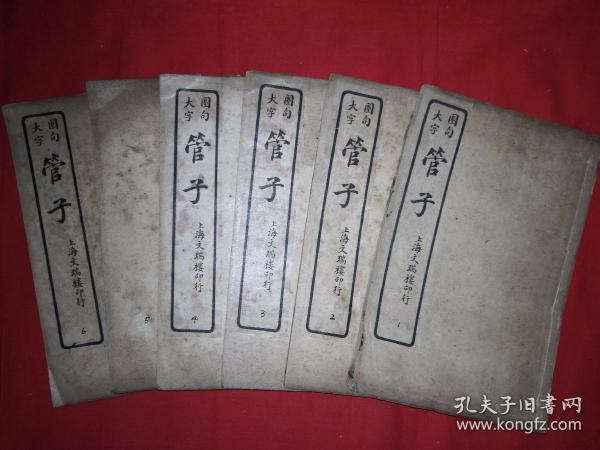 圈句
大字
管子
上海文瑞樓印行
1
圈句
大字
管子
上海文瑞樓印行
2
圈句
大字
管子
上海文瑞樓印行
3
圈句
大字
管子
上海文瑞樓印行
4
5
圈句
大字
管子
上海文瑞樓印行
6
孔夫子旧书网
www.kongfz.com